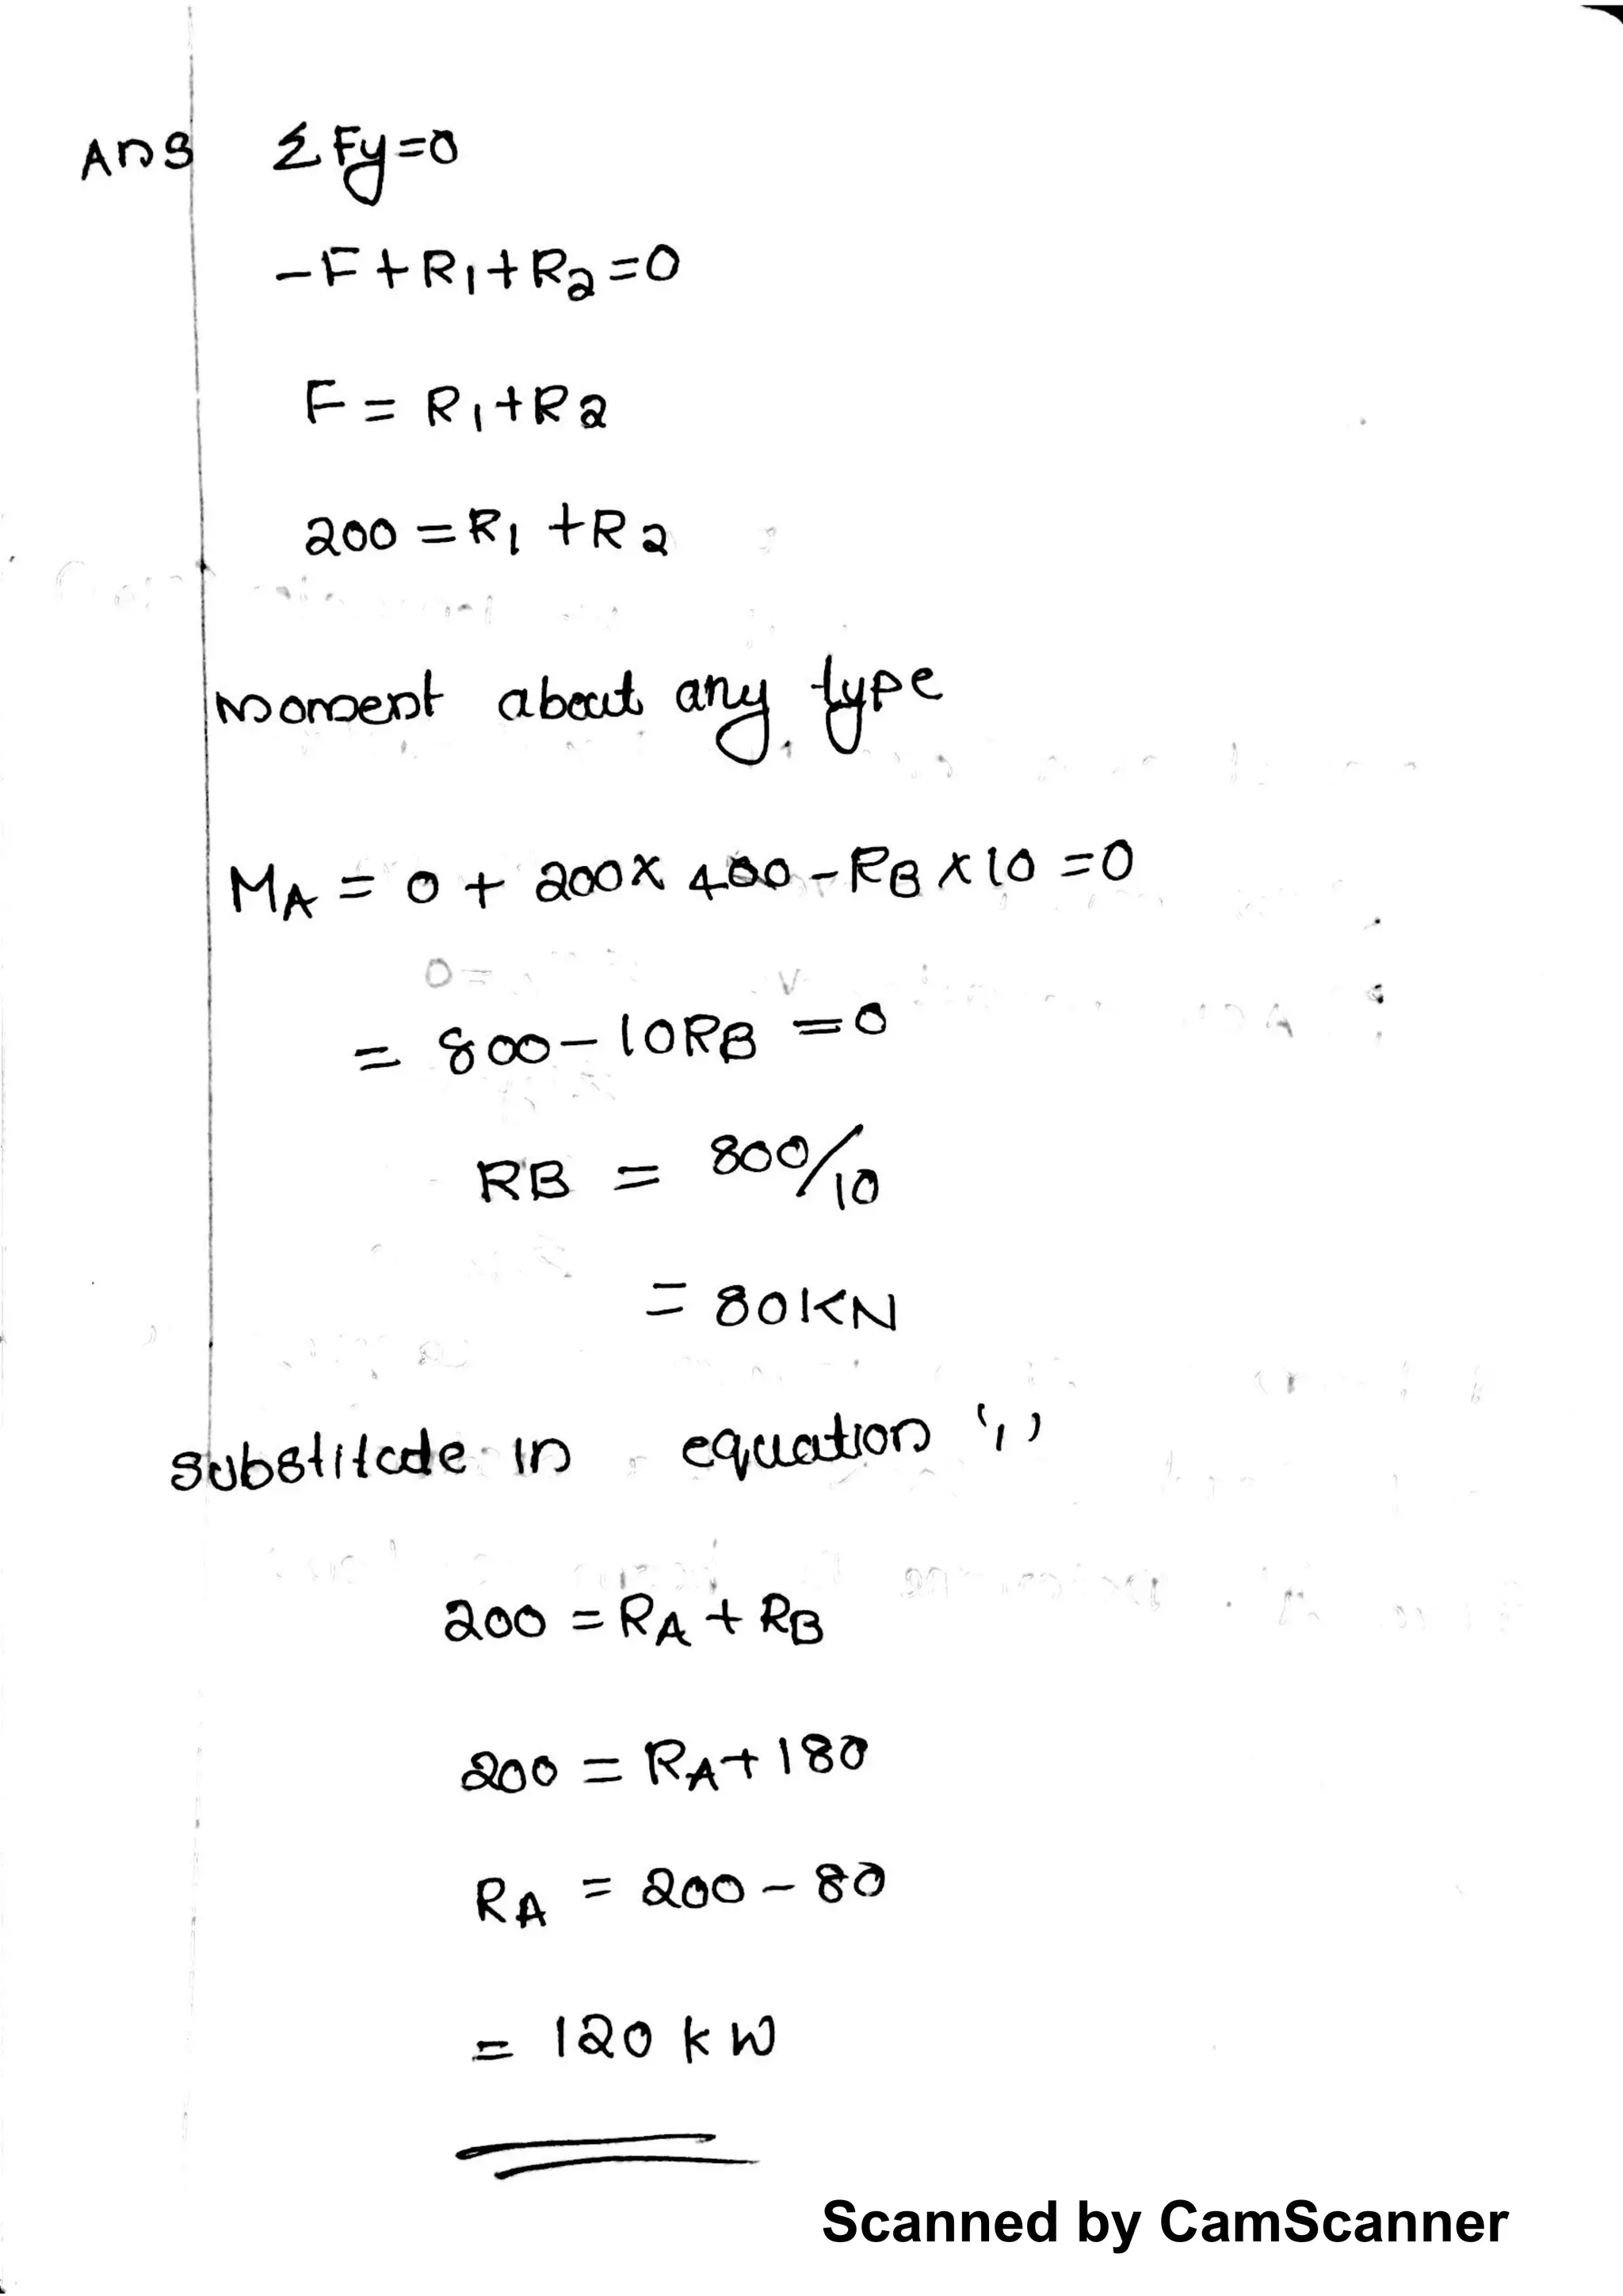 Ans ΣFy=0
-F+R1+R2=0
F = R1+R2
200 = R1 +R2
Moment about any type
MA = 0 + 200x 400 - RB x 10 = 0
= 800 - 10RB = 0
RB = 800/10
= 80KN
substitute in equation '1'
200 = RA + RB
200 = RA+180
RA = 200 - 80
= 120 kW
Scanned by CamScanner